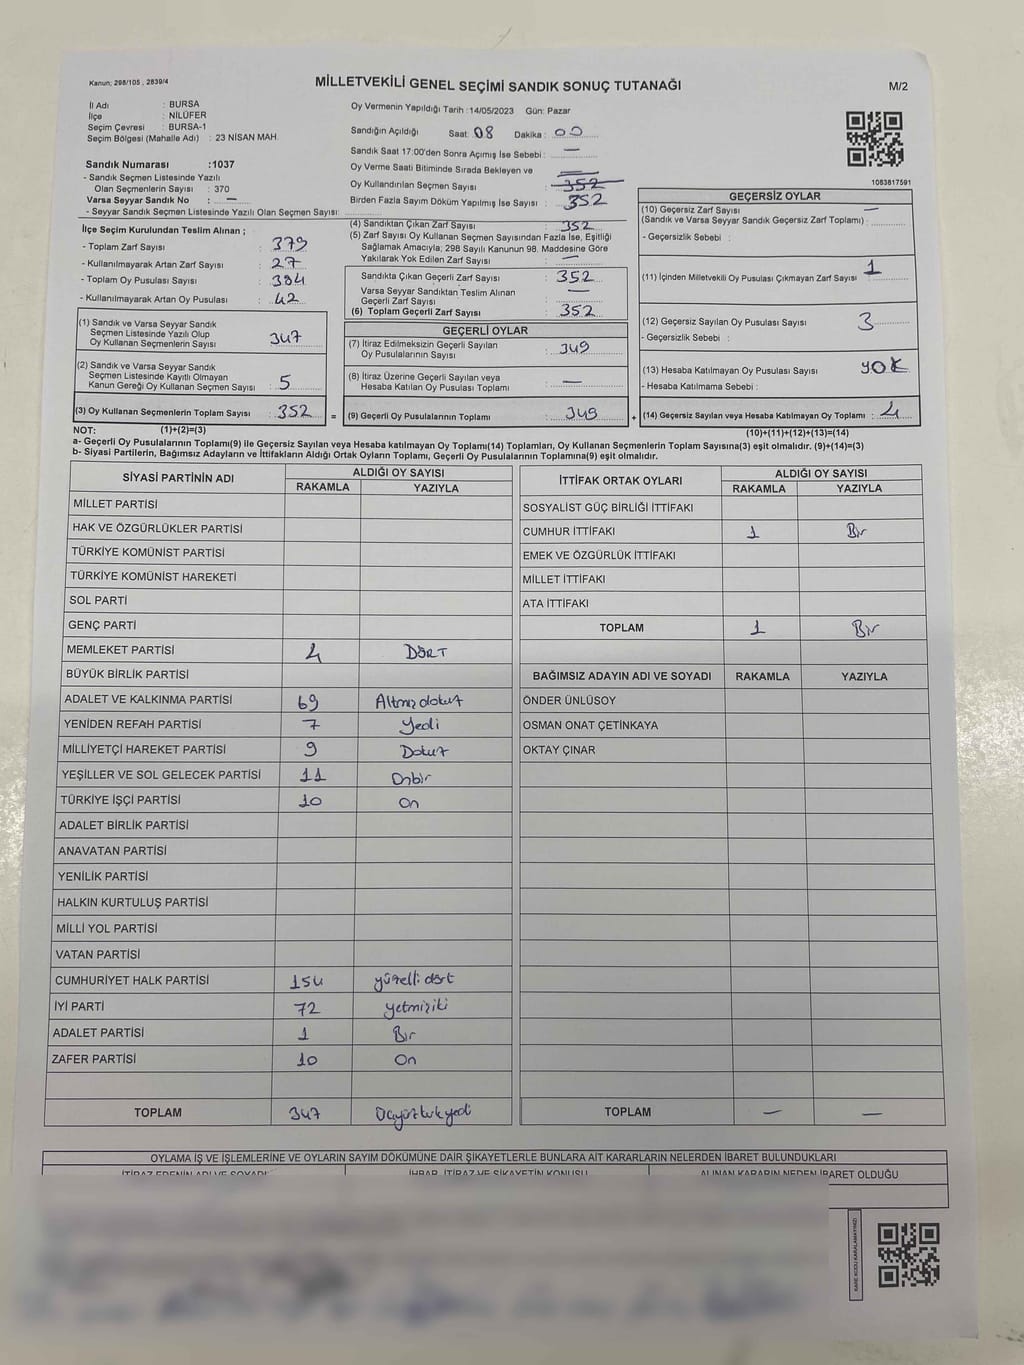 Kanun: 298/105 , 2839/4
MİLLETVEKİLİ GENEL SEÇİMİ SANDIK SONUÇ TUTANAĞI
M/2
İl Adı : BURSA
İlçe : NİLÜFER
Seçim Çevresi : BURSA-1
Seçim Bölgesi (Mahalle Adı) : 23 NİSAN MAH.
Sandık Numarası :1037
- Sandık Seçmen Listesinde Yazılı
Olan Seçmenlerin Sayısı : 370
Varsa Seyyar Sandık No : —
- Seyyar Sandık Seçmen Listesinde Yazılı Olan Seçmen Sayısı:
İlçe Seçim Kurulundan Teslim Alınan ;
- Toplam Zarf Sayısı : 379
- Kullanılmayarak Artan Zarf Sayısı : 27
- Toplam Oy Pusulası Sayısı : 394
- Kullanılmayarak Artan Oy Pusulası : 42
(1) Sandık ve Varsa Seyyar Sandık
Seçmen Listesinde Yazılı Olup
Oy Kullanan Seçmenlerin Sayısı : 347
(2) Sandık ve Varsa Seyyar Sandık
Seçmen Listesinde Kayıtlı Olmayan
Kanun Gereği Oy Kullanan Seçmen Sayısı : 5
(3) Oy Kullanan Seçmenlerin Toplam Sayısı : 352 =
Oy Vermenin Yapıldığı Tarih :14/05/2023 Gün: Pazar
Sandığın Açıldığı Saat: 08 Dakika : 00
Sandık Saat 17:00'den Sonra Açımış İse Sebebi : —
Oy Verme Saati Bitiminde Sırada Bekleyen ve
Oy Kullandırılan Seçmen Sayısı : 352
Birden Fazla Sayım Döküm Yapılmış İse Sayısı : 352
(4) Sandıktan Çıkan Zarf Sayısı : 352
(5) Zarf Sayısı Oy Kullanan Seçmen Sayısından Fazla İse, Eşitliği
Sağlamak Amacıyla; 298 Sayılı Kanunun 98. Maddesine Göre
Yakılarak Yok Edilen Zarf Sayısı : —
Sandıkta Çıkan Geçerli Zarf Sayısı : 352
Varsa Seyyar Sandıktan Teslim Alınan
Geçerli Zarf Sayısı : —
(6) Toplam Geçerli Zarf Sayısı : 352
GEÇERLİ OYLAR
(7) İtiraz Edilmeksizin Geçerli Sayılan
Oy Pusulalarının Sayısı : 349
(8) İtiraz Üzerine Geçerli Sayılan veya
Hesaba Katılan Oy Pusulası Toplamı : —
(9) Geçerli Oy Pusulalarının Toplamı : 349 +
1083817591
GEÇERSİZ OYLAR
(10) Geçersiz Zarf Sayısı —
(Sandık ve Varsa Seyyar Sandık Geçersiz Zarf Toplamı) :
- Geçersizlik Sebebi :
(11) İçinden Milletvekili Oy Pusulası Çıkmayan Zarf Sayısı : 1
(12) Geçersiz Sayılan Oy Pusulası Sayısı : 3
- Geçersizlik Sebebi :
(13) Hesaba Katılmayan Oy Pusulası Sayısı : YOK
- Hesaba Katılmama Sebebi :
(14) Geçersiz Sayılan veya Hesaba Katılmayan Oy Toplamı : 4
NOT: (1)+(2)=(3)
(10)+(11)+(12)+(13)=(14)
a- Geçerli Oy Pusulalarının Toplamı(9) ile Geçersiz Sayılan veya Hesaba katılmayan Oy Toplamı(14) Toplamları, Oy Kullanan Seçmenlerin Toplam Sayısına(3) eşit olmalıdır. (9)+(14)=(3)
b- Siyasi Partilerin, Bağımsız Adayların ve İttifakların Aldığı Ortak Oyların Toplamı, Geçerli Oy Pusulalarının Toplamına(9) eşit olmalıdır.
SİYASİ PARTİNİN ADI
ALDIĞI OY SAYISI
RAKAMLA YAZIYLA
MİLLET PARTİSİ
HAK VE ÖZGÜRLÜKLER PARTİSİ
TÜRKİYE KOMÜNİST PARTİSİ
TÜRKİYE KOMÜNİST HAREKETİ
SOL PARTİ
GENÇ PARTİ
MEMLEKET PARTİSİ 4 DÖRT
BÜYÜK BİRLİK PARTİSİ
ADALET VE KALKINMA PARTİSİ 69 Altmışdokuz
YENİDEN REFAH PARTİSİ 7 Yedi
MİLLİYETÇİ HAREKET PARTİSİ 9 Dokuz
YEŞİLLER VE SOL GELECEK PARTİSİ 11 Onbir
TÜRKİYE İŞÇİ PARTİSİ 10 On
ADALET BİRLİK PARTİSİ
ANAVATAN PARTİSİ
YENİLİK PARTİSİ
HALKIN KURTULUŞ PARTİSİ
MİLLİ YOL PARTİSİ
VATAN PARTİSİ
CUMHURİYET HALK PARTİSİ 154 yüzelli dört
İYİ PARTİ 72 yetmişiki
ADALET PARTİSİ 1 Bir
ZAFER PARTİSİ 10 On
TOPLAM 347
İTTİFAK ORTAK OYLARI
ALDIĞI OY SAYISI
RAKAMLA YAZIYLA
SOSYALİST GÜÇ BİRLİĞİ İTTİFAKI
CUMHUR İTTİFAKI 1 Bir
EMEK VE ÖZGÜRLÜK İTTİFAKI
MİLLET İTTİFAKI
ATA İTTİFAKI
TOPLAM 1 Bir
BAĞIMSIZ ADAYIN ADI VE SOYADI RAKAMLA YAZIYLA
ÖNDER ÜNLÜSOY
OSMAN ONAT ÇETİNKAYA
OKTAY ÇINAR
TOPLAM — —
OYLAMA İŞ VE İŞLEMLERİNE VE OYLARIN SAYIM DÖKÜMÜNE DAİR ŞİKAYETLERLE BUNLARA AİT KARARLARIN NELERDEN İBARET BULUNDUKLARI
İTİRAZ EDENİN ADI VE SOYADI İHBAR, İTİRAZ VE ŞİKAYETİN KONUSU ALINAN KARARIN NEDEN İBARET OLDUĞU
KARE KODU KARALAMAYINIZ!